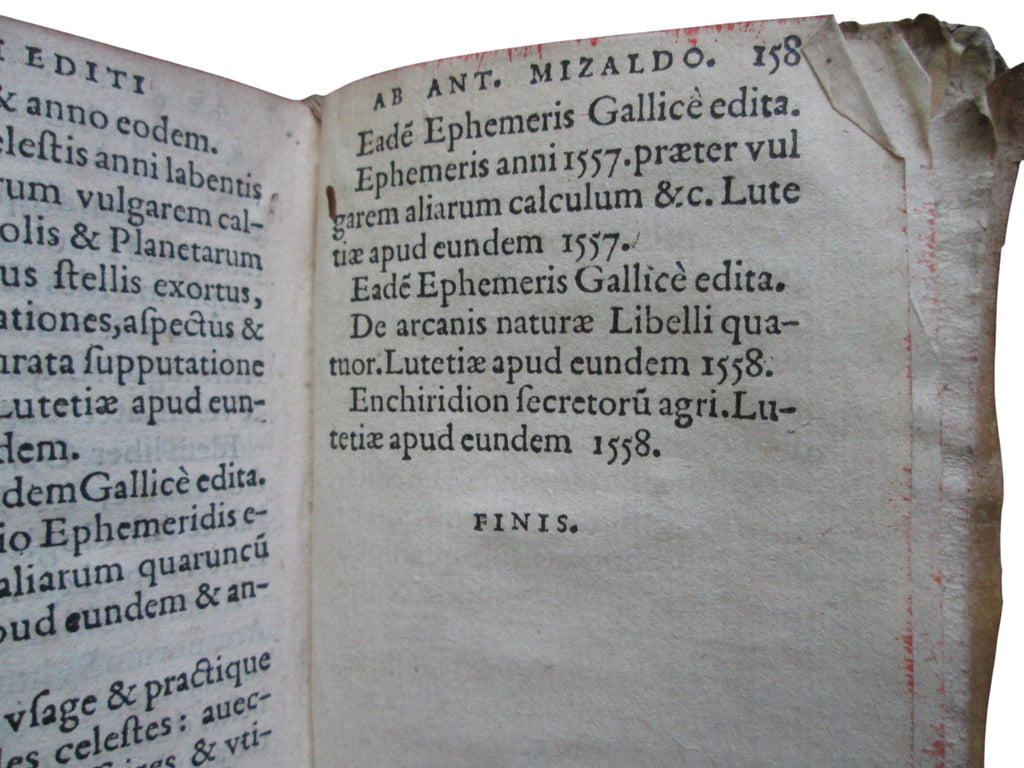 EDITI
& anno eodem.
eleſtis anni labentis
rum vulgarem cal-
olis & Planetarum
us ſtellis exortus,
ationes, aſpectus &
urata ſupputatione
Lutetiæ apud eun-
dem.
dem Gallicè edita.
io Ephemeridis e-
aliarum quaruncũ
pud eundem & an-
vſage & practique
les celeſtes: auec-
& vti-
AB ANT. MIZALDO. 158
Eadẽ Ephemeris Gallicè edita.
Ephemeris anni 1557. præter vul
garem aliarum calculum &c. Lute
tiæ apud eundem 1557.
Eadẽ Ephemeris Gallicè edita.
De arcanis naturæ Libelli qua-
tuor. Lutetiæ apud eundem 1558.
Enchiridion ſecretorũ agri. Lu-
tetiæ apud eundem 1558.
FINIS.